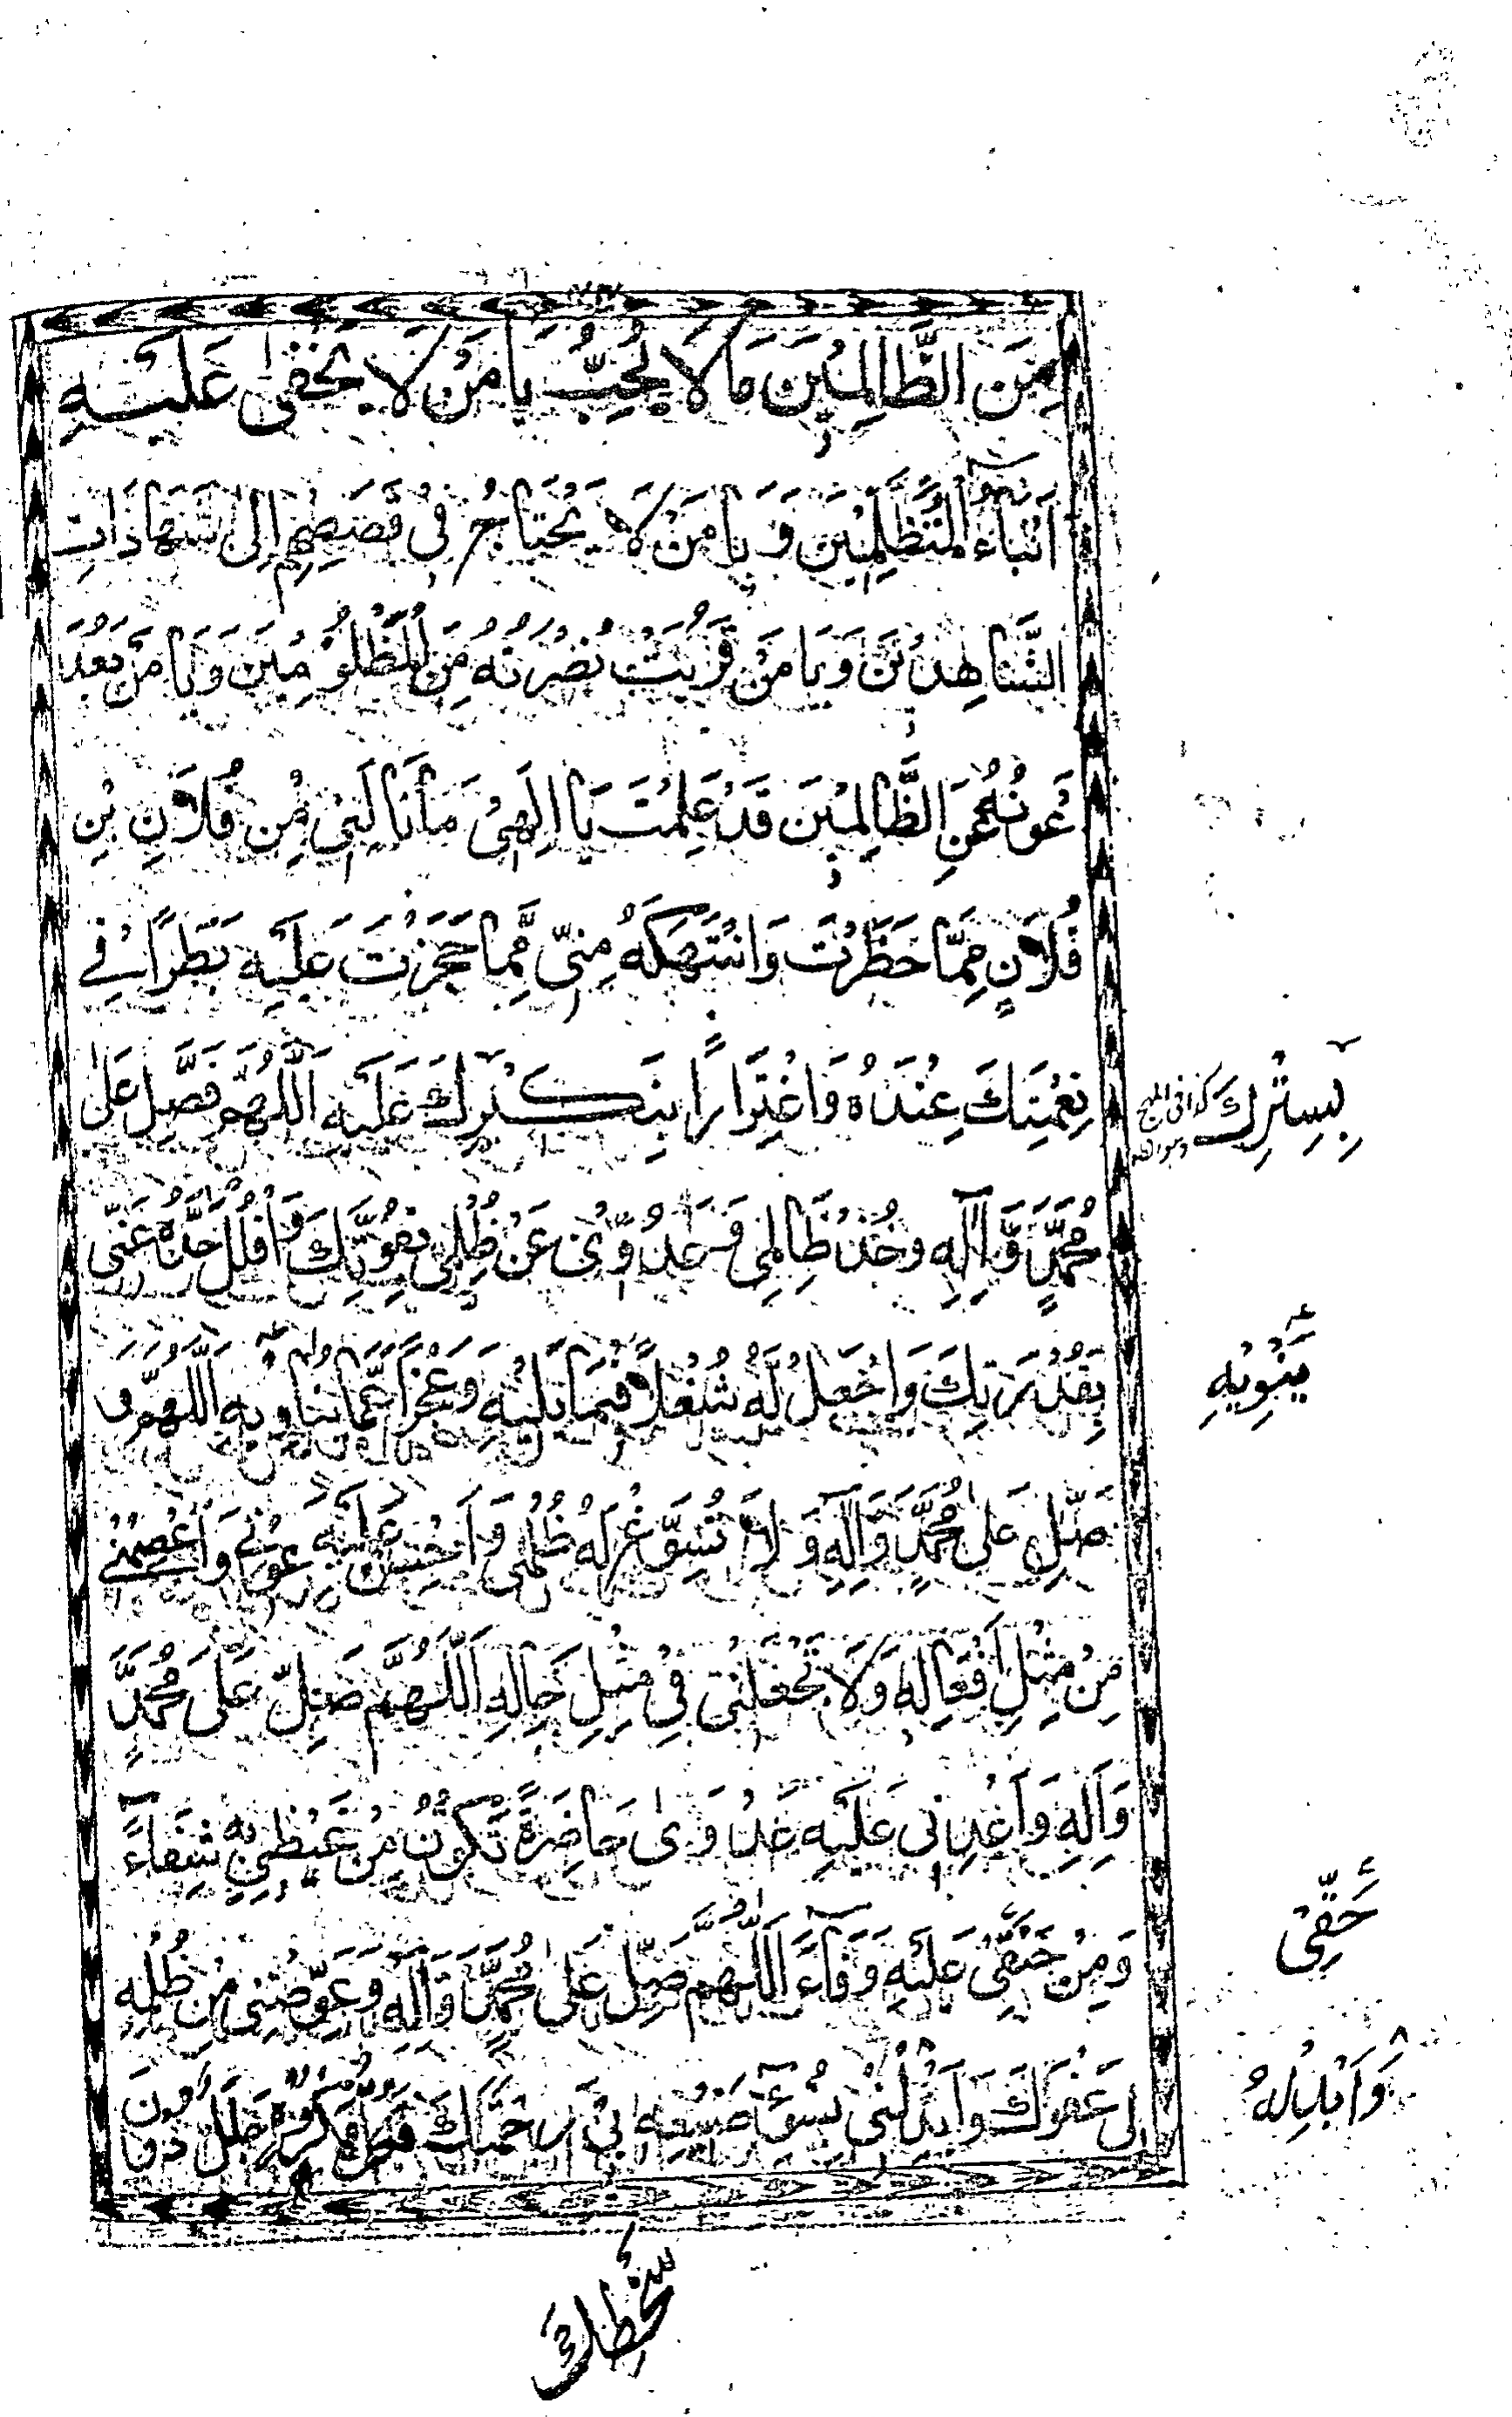 مِنَ الظَّالِمِيْنَ مَا لَا يُحِبُّ يَا مَنْ لَا يَخْفٰى عَلَيْهِ
اَنْبَاءُ الْمُتَظَلِّمِيْنَ وَ يَا مَنْ لَا يَحْتَاجُ فِيْ قَصَصِهِمْ اِلٰى شَهَادَاتِ
الشَّاهِدِيْنَ وَ يَا مَنْ قَرُبَتْ نُصْرَتُهُ مِنَ الْمَظْلُوْمِيْنَ وَ يَا مَنْ بَعُدَ
عَوْنُهُ عَنِ الظَّالِمِيْنَ قَدْ عَلِمْتَ يَا اِلٰهِيْ مَا نَالَنِيْ مِنْ فُلَانِ بْنِ
فُلَانٍ مِمَّا حَظَرْتَ وَ انْتَهَكَهُ مِنِّيْ مِمَّا حَجَزْتَ عَلَيْهِ بَطَرًا فِيْ
نِعْمَتِكَ عِنْدَهُ وَ اغْتِرَارًا بِنَكِيْرِكَ عَلَيْهِ اَللّٰهُمَّ فَصَلِّ عَلٰى
بِسِتْرِكَ
مُحَمَّدٍ وَّ اٰلِهِ وَ خُذْ ظَالِمِيْ وَ عَدُوِّيْ عَنْ ظُلْمِيْ بِقُوَّتِكَ وَ افْلُلْ حَدَّهُ عَنِّيْ
بِقُدْرَتِكَ وَ اجْعَلْ لَهُ شُغْلًا فِيْمَا يَلِيْهِ وَ عَجْزًا عَمَّا يُنَاوِيْهِ اَللّٰهُمَّ وَ
يَنْوِيْهِ
صَلِّ عَلٰى مُحَمَّدٍ وَّ اٰلِهِ وَ لَا تُسَوِّغْ لَهُ ظُلْمِيْ وَ اَحْسِنْ عَلَيْهِ عَوْنِيْ وَ اعْصِمْنِيْ
مِنْ مِثْلِ اَفْعَالِهِ وَ لَا تَجْعَلْنِيْ فِيْ مِثْلِ حَالِهِ اَللّٰهُمَّ صَلِّ عَلٰى مُحَمَّدٍ
وَّ اٰلِهِ وَ اَعْدِنِيْ عَلَيْهِ عَدْوٰى حَاضِرَةً تَكُوْنُ مِنْ غَيْظِيْ بِهِ شِفَاءً
وَ مِنْ حَنَقِيْ عَلَيْهِ وَفَاءً اَللّٰهُمَّ صَلِّ عَلٰى مُحَمَّدٍ وَّ اٰلِهِ وَ عَوِّضْنِيْ مِنْ ظُلْمِهِ
حَقِّيْ
لِيْ عَفْوَكَ وَ اَبْدِلْنِيْ بِسُوْءِ صَنِيْعِهِ بِيْ رَحْمَتَكَ فَكُلُّ مَكْرُوْهٍ جَلَلٌ دُوْنَ
وَ اَبْدِلْهُ
سَخَطِكَ